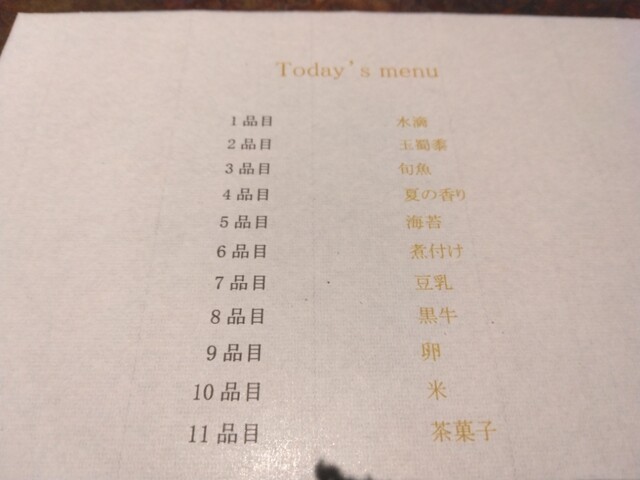 Today's menu
1品目 水滴
2品目 玉蜀黍
3品目 旬魚
4品目 夏の香り
5品目 海苔
6品目 煮付け
7品目 豆乳
8品目 黒牛
9品目 卵
10品目 米
11品目 茶菓子